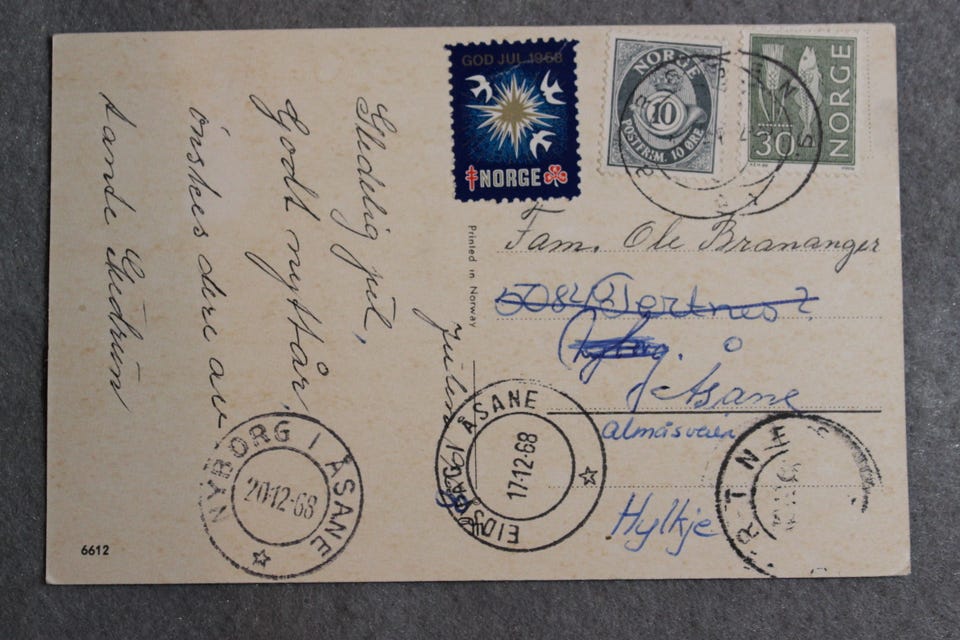 Gledelig jul,
Godt nyttår,
önskes dere av
tante Gudrun
Julen 1968
GOD JUL 1968
NORGE
NORGE
10
POSTFRIM. 10 ØRE
NORGE
30
Printed in Norway
Fam. Ole Brananger
Åsane
Almåsveien
Hylkje
NYBORG I ÅSANE
20·12-68
EIDSVÅG I ÅSANE
17·12-68
6612